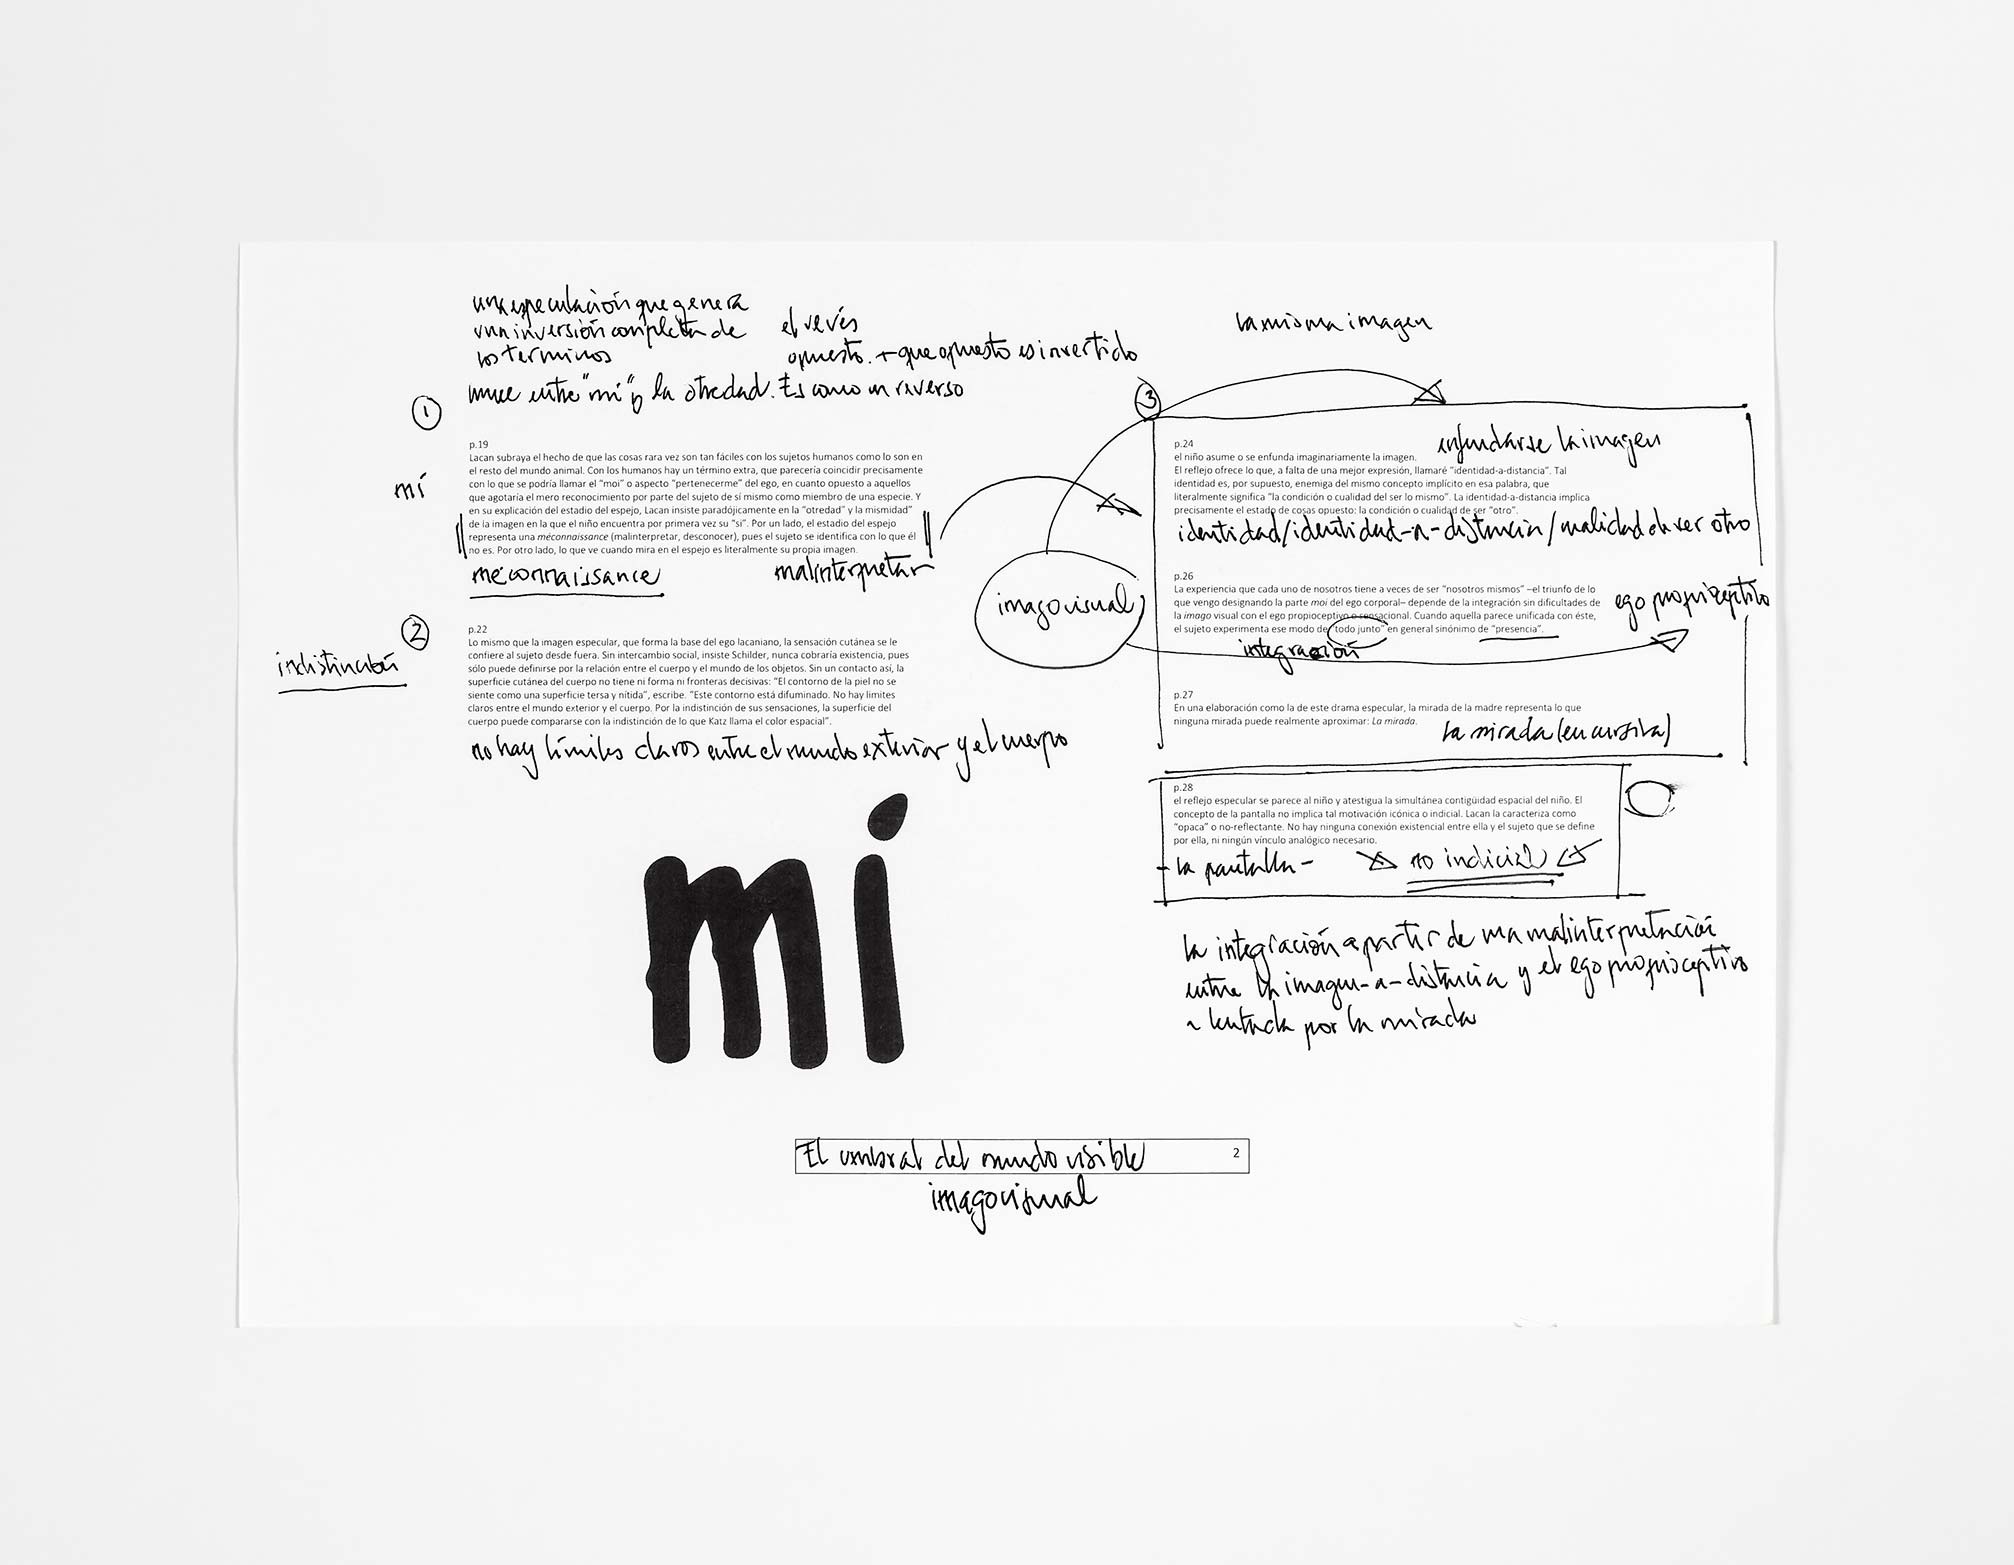 una especulación que genera
una inversión completa de
los terminos
el revés
opuesto. + que opuesto es invertido
entre "mí" y la otredad. Es como un reverso
1
p.19
Lacan subraya el hecho de que las cosas rara vez son tan fáciles con los sujetos humanos como lo son en
el resto del mundo animal. Con los humanos hay un término extra, que parecería coincidir precisamente
con lo que se podría llamar el "moi" o aspecto "pertenecerme" del ego, en cuanto opuesto a aquellos
que agotaría el mero reconocimiento por parte del sujeto de sí mismo como miembro de una especie. Y
en su explicación del estadio del espejo, Lacan insiste paradójicamente en la "otredad" y la mismidad"
de la imagen en la que el niño encuentra por primera vez su "si". Por un lado, el estadio del espejo
representa una méconnaissance (malinterpretar, desconocer), pues el sujeto se identifica con lo que él
no es. Por otro lado, lo que ve cuando mira en el espejo es literalmente su propia imagen.
mí
méconnaissance
malinterpretar
2
indistinción
p.22
Lo mismo que la imagen especular, que forma la base del ego lacaniano, la sensación cutánea se le
confiere al sujeto desde fuera. Sin intercambio social, insiste Schilder, nunca cobraría existencia, pues
sólo puede definirse por la relación entre el cuerpo y el mundo de los objetos. Sin un contacto así, la
superficie cutánea del cuerpo no tiene ni forma ni fronteras decisivas: "El contorno de la piel no se
siente como una superficie tersa y nítida", escribe. "Este contorno está difuminado. No hay limites
claros entre el mundo exterior y el cuerpo. Por la indistinción de sus sensaciones, la superficie del
cuerpo puede compararse con la indistinción de lo que Katz llama el color espacial".
no hay límites claros entre el mundo exterior y el cuerpo
mí
imago visual
la misma imagen
3
p.24
enfundarse la imagen
el niño asume o se enfunda imaginariamente la imagen.
El reflejo ofrece lo que, a falta de una mejor expresión, llamaré "identidad-a-distancia". Tal
identidad es, por supuesto, enemiga del mismo concepto implícito en esa palabra, que
literalmente significa "la condición o cualidad del ser lo mismo". La identidad-a-distancia implica
precisamente el estado de cosas opuesto: la condición o cualidad de ser "otro".
identidad/identidad-a-distancia/cualidad de ser otro
p.26
La experiencia que cada uno de nosotros tiene a veces de ser "nosotros mismos" –el triunfo de lo
que vengo designando la parte moi del ego corporal– depende de la integración sin dificultades de
la imago visual con el ego propioceptivo o sensacional. Cuando aquella parece unificada con éste,
el sujeto experimenta ese modo de "todo junto" en general sinónimo de "presencia".
ego propioceptivo
integración
p.27
En una elaboración como la de este drama especular, la mirada de la madre representa lo que
ninguna mirada puede realmente aproximar: La mirada.
la mirada (en cursiva)
p.28
el reflejo especular se parece al niño y atestigua la simultánea contigüidad espacial del niño. El
concepto de la pantalla no implica tal motivación icónica o indicial. Lacan la caracteriza como
"opaca" o no-reflectante. No hay ninguna conexión existencial entre ella y el sujeto que se define
por ella, ni ningún vínculo analógico necesario.
- la pantalla -
no indicial
la integración a partir de una malinterpretación
entre la imagen-a-distancia y el ego propioceptivo
alentada por la mirada
El umbral del mundo visible
2
imago visual